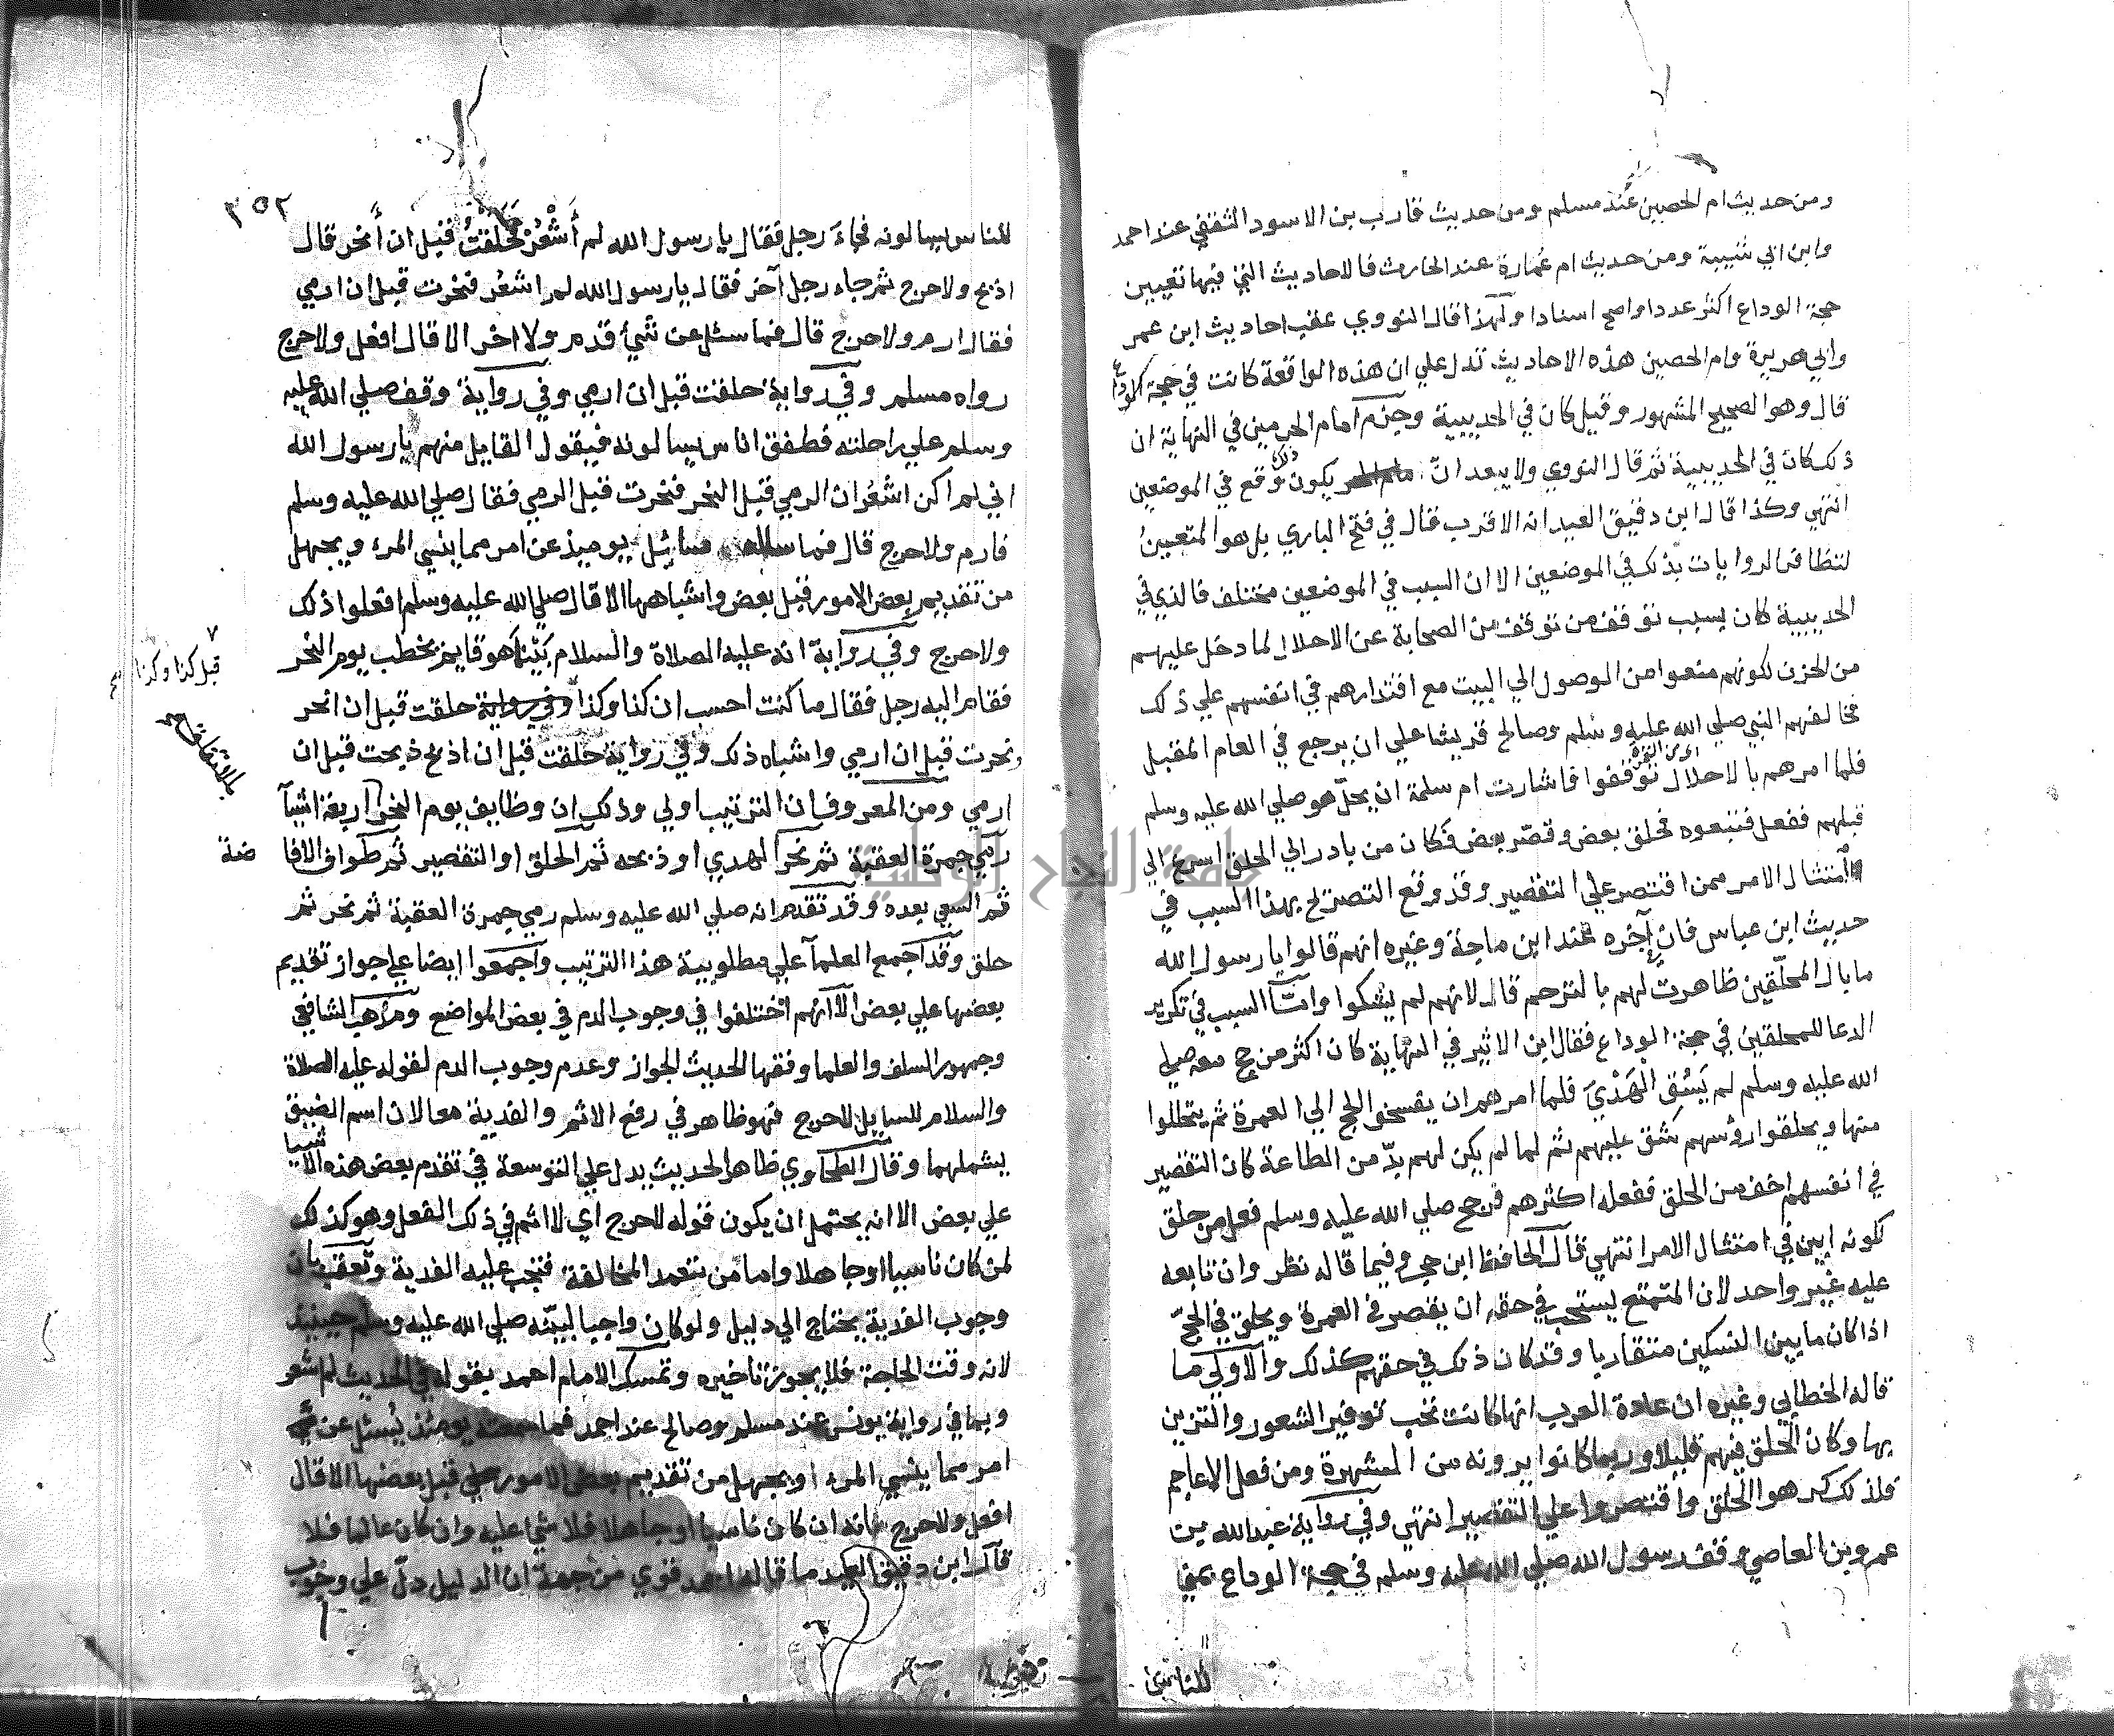 ومن حديث ام الحصين عند مسلم ومن حديث قارب بن الاسود الثقفي عند احمد
وابن ابي شيبة ومن حديث ام عمارة عند الحارث فالاحاديث التي فيها تعيين
حجة الوداع اكثر عددا واصح اسنادا ولهذا قال النووي عقب احاديث ابن عمر
وابي هريرة وام الحصين هذه الاحاديث تدل علي ان هذه الواقعة كانت في حجة الوداع
قال وهو الصحيح المشهور وقيل كان في الحديبية وجزم امام الحرمين في النهاية ان
ذلك كان في الحديبية ثم قال النووي ولا يبعد انّ يكون ذلك وقع في الموضعين
انتهي وكذا قال ابن دقيق العيد انه الاقرب قال في فتح الباري بل هو المتعيّن
لتظافر الروايات بذلك في الموضعين الا ان السبب في الموضعين مختلف فالذي في
الحديبية كان بسبب توقف من توقف من الصحابة عن الاحلال لما دخل عليهم
من الحزن لكونهم منعوا من الوصول الي البيت مع اقتدارهم في انفسهم علي ذلك
فخالفهم النبي صلي الله عليه وسلم وصالح قريشا علي ان يرجع في العام المقبل
فلما امرهم بالاحلال توقفوا فاشارت ام سلمة ان يحلّ هو صلي الله عليه وسلم
قبلهم ففعل فتبعوه فحلق بعض وقصّر بعض فكان من بادر الي الحلق اسرع الي
امتثال الامر ممن اقتصر علي التقصير وقد وقع التصريح بهذا السبب في
حديث ابن عباس فان آخره عند ابن ماجة وغيره انهم قالوا يا رسول الله
ما بال المحلّقين ظاهرت لهم بالترحم قال لانهم لم يشكوا وامّا السبب في تكرير
الدعا للمحلقين في حجة الوداع فقال ابن الاثير في النهاية كان اكثر من حج معه صلي
الله عليه وسلم لم يَسُق الهَدْيَ فلما امرهم ان يفسخوا الحج الي العمرة ثم يتحللوا
منها ويحلقوا رؤسهم شق عليهم ثم لما لم يكن لهم بدّ من الطاعة كان التقصير
في انفسهم اخف من الحلق ففعله اكثرهم فرجح صلي الله عليه وسلم فعل من حلق
لكونه ابين في امتثال الامر انتهي قال الحافظ ابن حجر وفيما قاله نظر وان تابعه
عليه غير واحد لان المتمتع يستحب في حقه ان يقصر في العمرة ويحلق في الحجّ
اذا كان ما بين النسكين متقاربا وقد كان ذلك في حقهم كذلك والاولي ما
قاله الخطابي وغيره ان عادة العرب انها كانت تحب توفير الشعور والتزين
بها وكان الحلق فيهم قليلا وربما كانوا يرونه من الشهرة ومن فعل الاعاجم
فلذلك كرهوا الحلق واقتصروا علي التقصير انتهي وفي رواية عبدالله بن
عمرو بن العاصي وقف رسول الله صلي الله عليه وسلم في حجة الوداع بمني
للناس
٣٥٢
للناس يسالونه فجاءَ رجل فقال يا رسول الله لم أَشْعُرْ فحَلَقْتُ قبل ان أَنحر قال
اذبح ولا حرج ثم جاء رجل آخر فقال يا رسول الله لم اشعُر فنحرت قبل ان ارمي
فقال ارم ولا حرج قال فما سئل عن شئ قدم ولا اخر الا قال افعل ولا حرج
رواه مسلم وفي رواية حلقت قبل ان ارمي وفي رواية وقف صلي الله عليه
وسلم علي راحلته فطفق اناس يسالونه فيقول القايل منهم يا رسول الله
اني لم اكن اشعُر ان الرمي قبل النحر فنحرت قبل الرمي فقال صلي الله عليه وسلم
فارم ولا حرج قال فما سئل يوميذ عن امر مما ينسي المرء ويجهل
من تقديم بعض الامور قبل بعض واشباهها الا قال صلي الله عليه وسلم افعلوا ذلك
ولا حرج وفي رواية انه عليه الصلاة والسلام بَيْنا هو قايم يخطب يوم النحر
فقام اليه رجل فقال ما كنت احسب ان كذا وكذا وفي رواية حلقت قبل ان انحر
قبل كذا وكذا صح
نحرت قبل ان ارمي واشباه ذلك وفي رواية حلقت قبل ان اذبح ذبحت قبل ان
بالاتفاق
ارمي ومن المعروف ان الترتيب اولي وذلك ان وظايف يوم النحر اربعة اشيآ
رمي جمرة العقبة ثم نحر الهدي او ذبحه ثم الحلق او التقصير ثم طواف الافاضة
ثم السعي بعده وقد تقدم انه صلي الله عليه وسلم رمي جمرة العقبة ثم نحر ثم
حلق وقد اجمع العلمآ علي مطلوبية هذا الترتيب واجمعوا ايضا علي جواز تقديم
بعضها علي بعض الا انهم اختلفوا في وجوب الدم في بعض المواضع ومذهب الشافعي
وجمهور السلف والعلما وفقها الحديث الجواز وعدم وجوب الدم لقوله عليه الصلاة
والسلام للسايل لا حرج فهو ظاهر في رفع الاثم والفدية معا لان اسم الضيق
يشملهما وقال الطحاوي ظاهر الحديث يدل علي التوسعة في تقدم بعض هذه الاشيا
علي بعض الا انه يحتمل ان يكون قوله لا حرج اي لا اثم في ذلك الفعل وهو كذلك
لمن كان ناسيا او جاهلا واما من تعمد المخالفة فتجب عليه الفدية وتعقب بان
وجوب الفدية يحتاج الي دليل ولو كان واجبا لبيّنه صلي الله عليه وسلم حينيذ
لانه وقت الحاجة فلا يجوز تاخيره وتمسك الامام احمد بقوله في الحديث لم اشعر
وبما في رواية يونس عند مسلم وصالح عند احمد فما سمعته يومئذ يُسئل عن
امر مما ينسي المرء او يجهل من تقديم بعض الامور علي قبل بعضها الا قال
افعل ولا حرج بانه ان كان ناسيا او جاهلا فلا شئ عليه وان كان عالما فلا
قال ابن دقيق العيد ما قاله احمد قوي من جهة ان الدليل دلّ علي وجوب
جامعة النجاح الوطنية